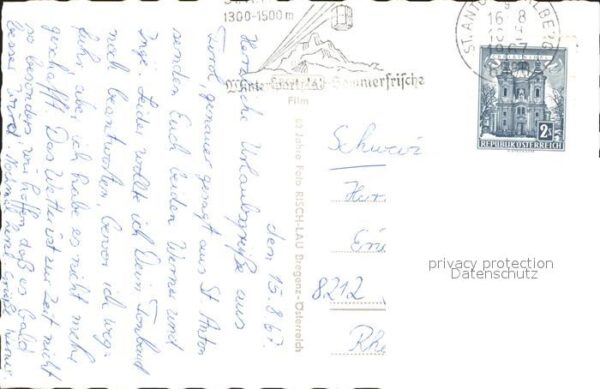 1300-1500m
Wintersportplatz-Sommerfrische
Film
ST. ANTON
16-8
1967
CHRISTKINDL
2 S
REPUBLIK ÖSTERREICH
62 Jahre Foto RISCH-LAU Bregenz-Österreich
den 15.8.67.
Herzliche Urlaubsgrüße aus
Tirol, genauer gesagt aus St. Anton
senden Euch beiden Werner und
Inge. Leider wollte ich Dein Tonband
noch beantworten, bevor ich weg-
fuhr, aber ich habe es nicht mehr
geschafft. Das Wetter ist zur Zeit nicht
so besonders, wir hoffen, daß es bald
besser wird.
Schweiz
Herr
8212
privacy protection
Datenschutz